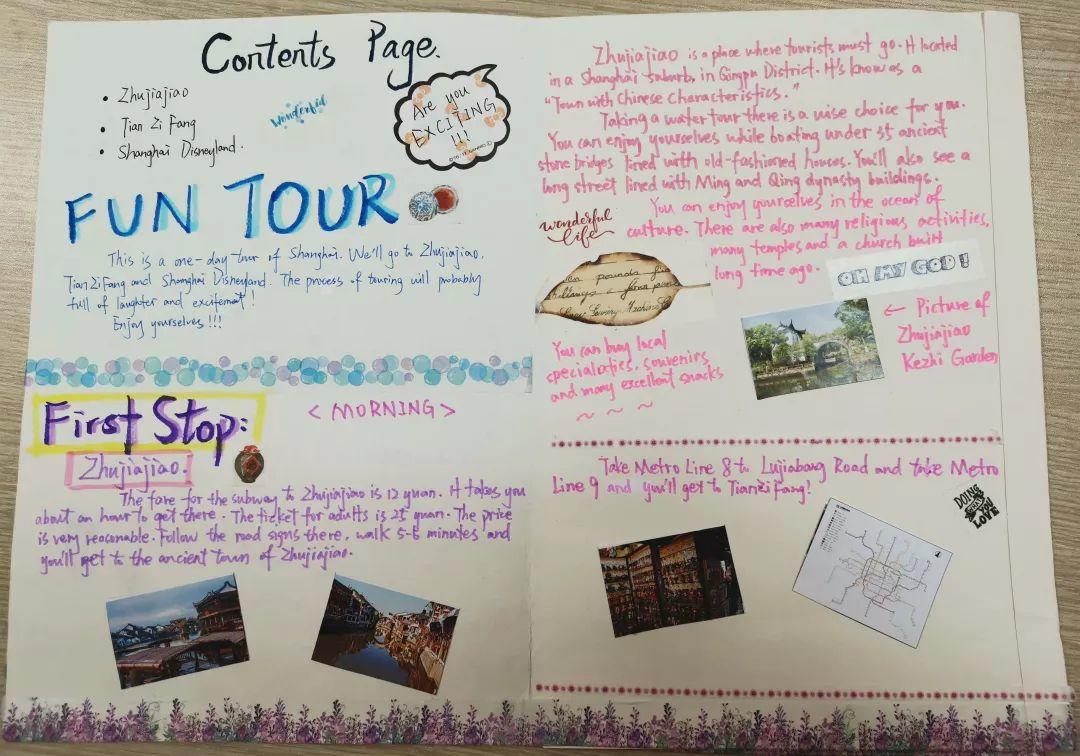 Contents Page.
• Zhujiajiao
• Tian Zi Fang
• Shanghai Disneyland.
Wonderful
Are you
EXCITING
!!!
FUN TOUR
This is a one-day tour of Shanghai. We'll go to Zhujiajiao,
Tian Zi Fang and Shanghai Disneyland. The process of touring will probably
full of laughter and excitement!
Enjoy yourselves!!!
First Stop:
<MORNING>
Zhujiajiao.
The fare for the subway to Zhujiajiao is 12 yuan. It takes you
about an hour to get there. The ticket for adults is 25 yuan. The price
is very reasonable. Follow the road signs there, walk 5-6 minutes and
you'll get to the ancient town of Zhujiajiao.
Zhujiajiao is a place where tourists must go. It located
in a Shanghai suburb, in Qingpu District. It's know as a
"Town with Chinese Characteristics."
Taking a water tour there is a wise choice for you.
You can enjoy yourselves while boating under 35 ancient
stone bridges lined with old-fashioned houses. You'll also see a
long street lined with Ming and Qing dynasty buildings.
You can enjoy yourselves in the ocean of
culture. There are also many religious activities,
many temples and a church built
long time ago.
wonderful
life
OH MY GOD!
pounds
← Picture of
Zhujiajiao
Kezhi Garden
You can buy local
specialties, souvenirs
and many excellent snacks
~ ~ ~
Take Metro Line 8 to Lujiabang Road and take Metro
Line 9 and you'll get to Tianzifang!
DOING
WHAT
YOU
LOVE